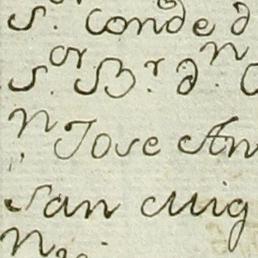 S.ᵒʳ Conde d
S.ᵒʳ B.ʳ d.ⁿ
n. Jose An
san Mig